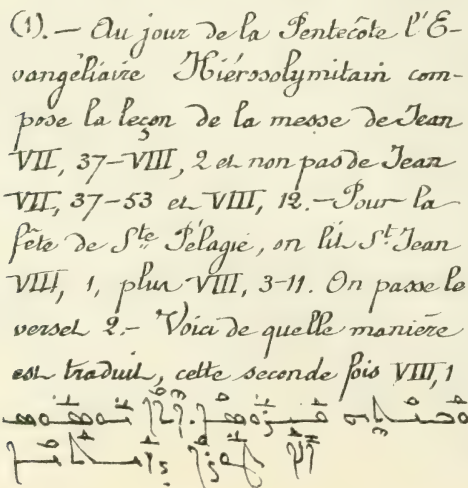 (1).— Au jour de la Pentecôte l'É-
vangéliaire Hiérosolymitain com-
pose la leçon de la messe de Jean
VII, 37-VIII, 2 et non pas de Jean
VII, 37-53 et VIII, 12.- Pour la
fête de Ste Pélagie, on lit St Jean
VIII, 1, plus VIII, 3-11. On passe le
verset 2.- Voici de quelle manière
est traduit, cette seconde fois VIII, 1